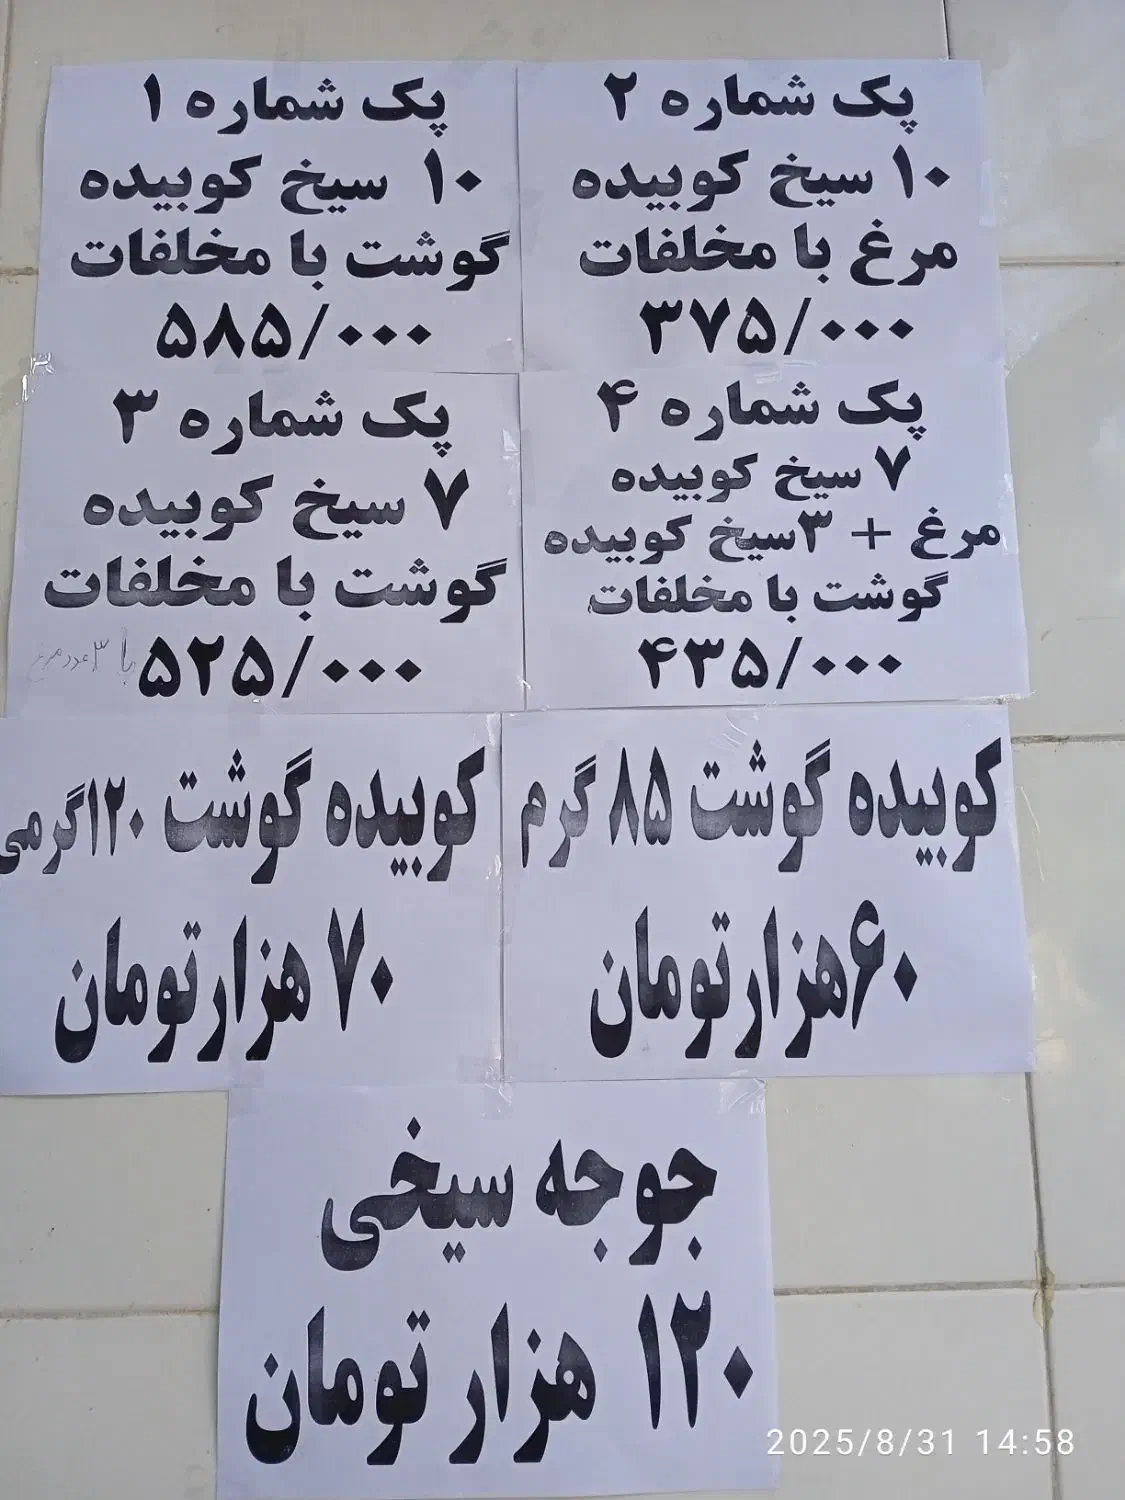 پک شماره ۱
۱۰ سیخ کوبیده
گوشت با مخلفات
۵۸۵/۰۰۰
پک شماره ۲
۱۰ سیخ کوبیده
مرغ با مخلفات
۳۷۵/۰۰۰
پک شماره ۳
۷ سیخ کوبیده
گوشت با مخلفات
۵۲۵/۰۰۰
با ۳ عدد مرغ
پک شماره ۴
۷ سیخ کوبیده
مرغ + ۳سیخ کوبیده
گوشت با مخلفات
۴۳۵/۰۰۰
کوبیده گوشت ۱۲۰گرمی
۷۰ هزارتومان
کوبیده گوشت ۸۵ گرم
۶۰هزارتومان
جوجه سیخی
۱۲۰ هزار تومان
2025/8/31 14:58